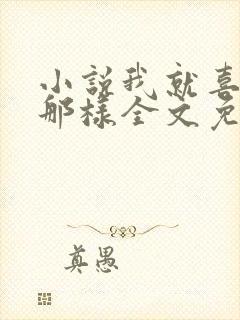 小説我就喜
那樣全文免
真愚